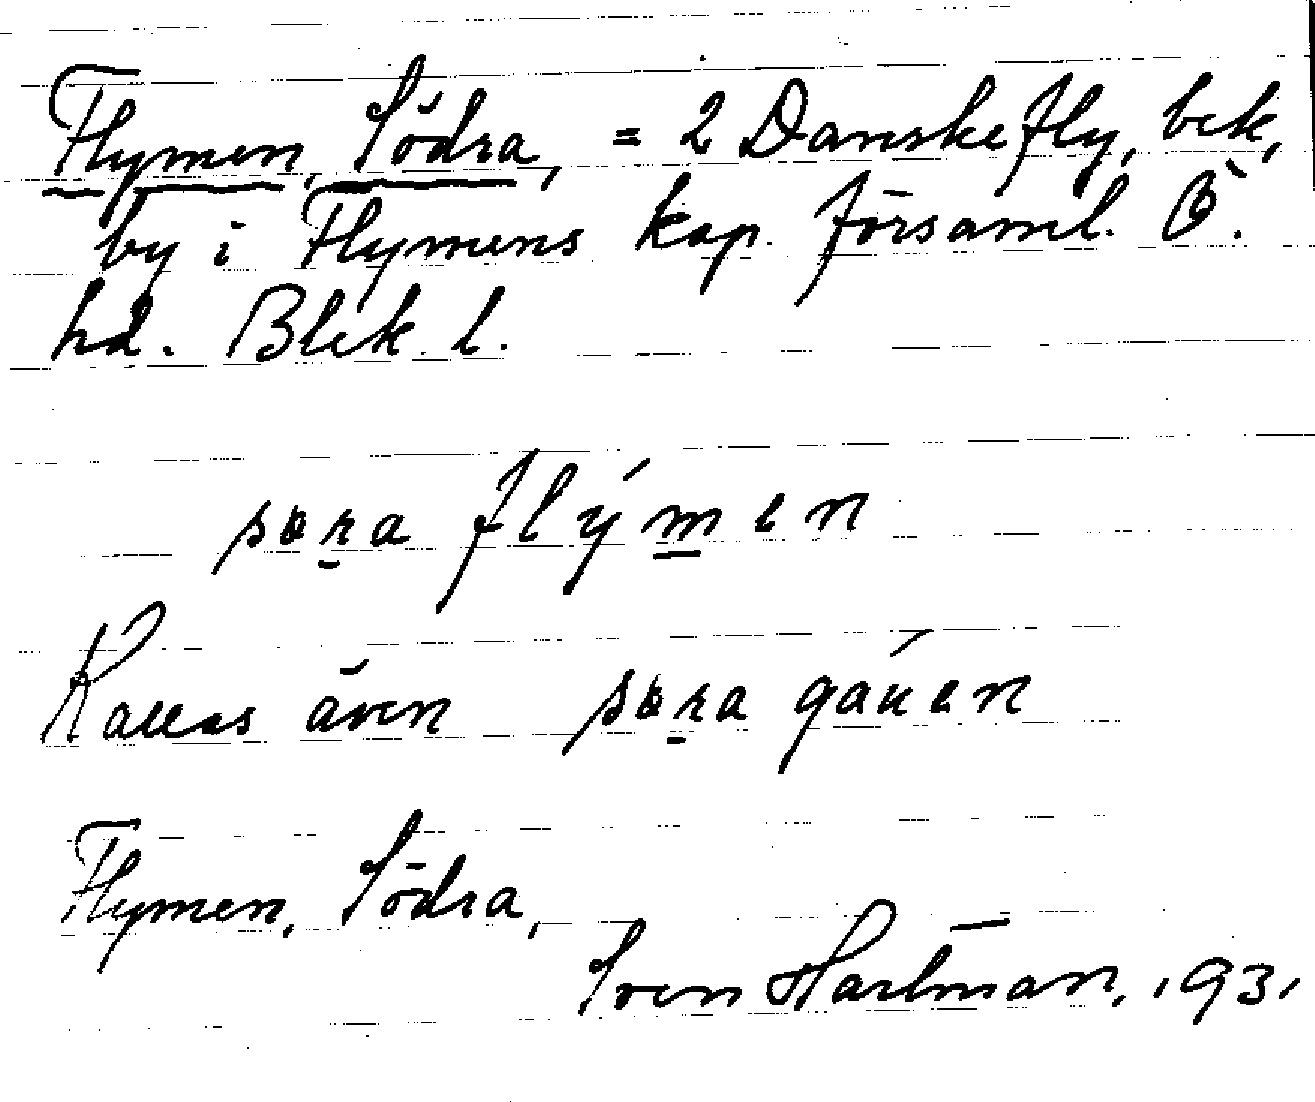 Flymen, Södra, = 2 Danskefly, bek,
by i Flymens kap. församl. Ö.
hd. Blek. l.
sɵra flýmen
Kallas även sɵra gáuen
Flymen, Södra,
Sven Hartman, 1931